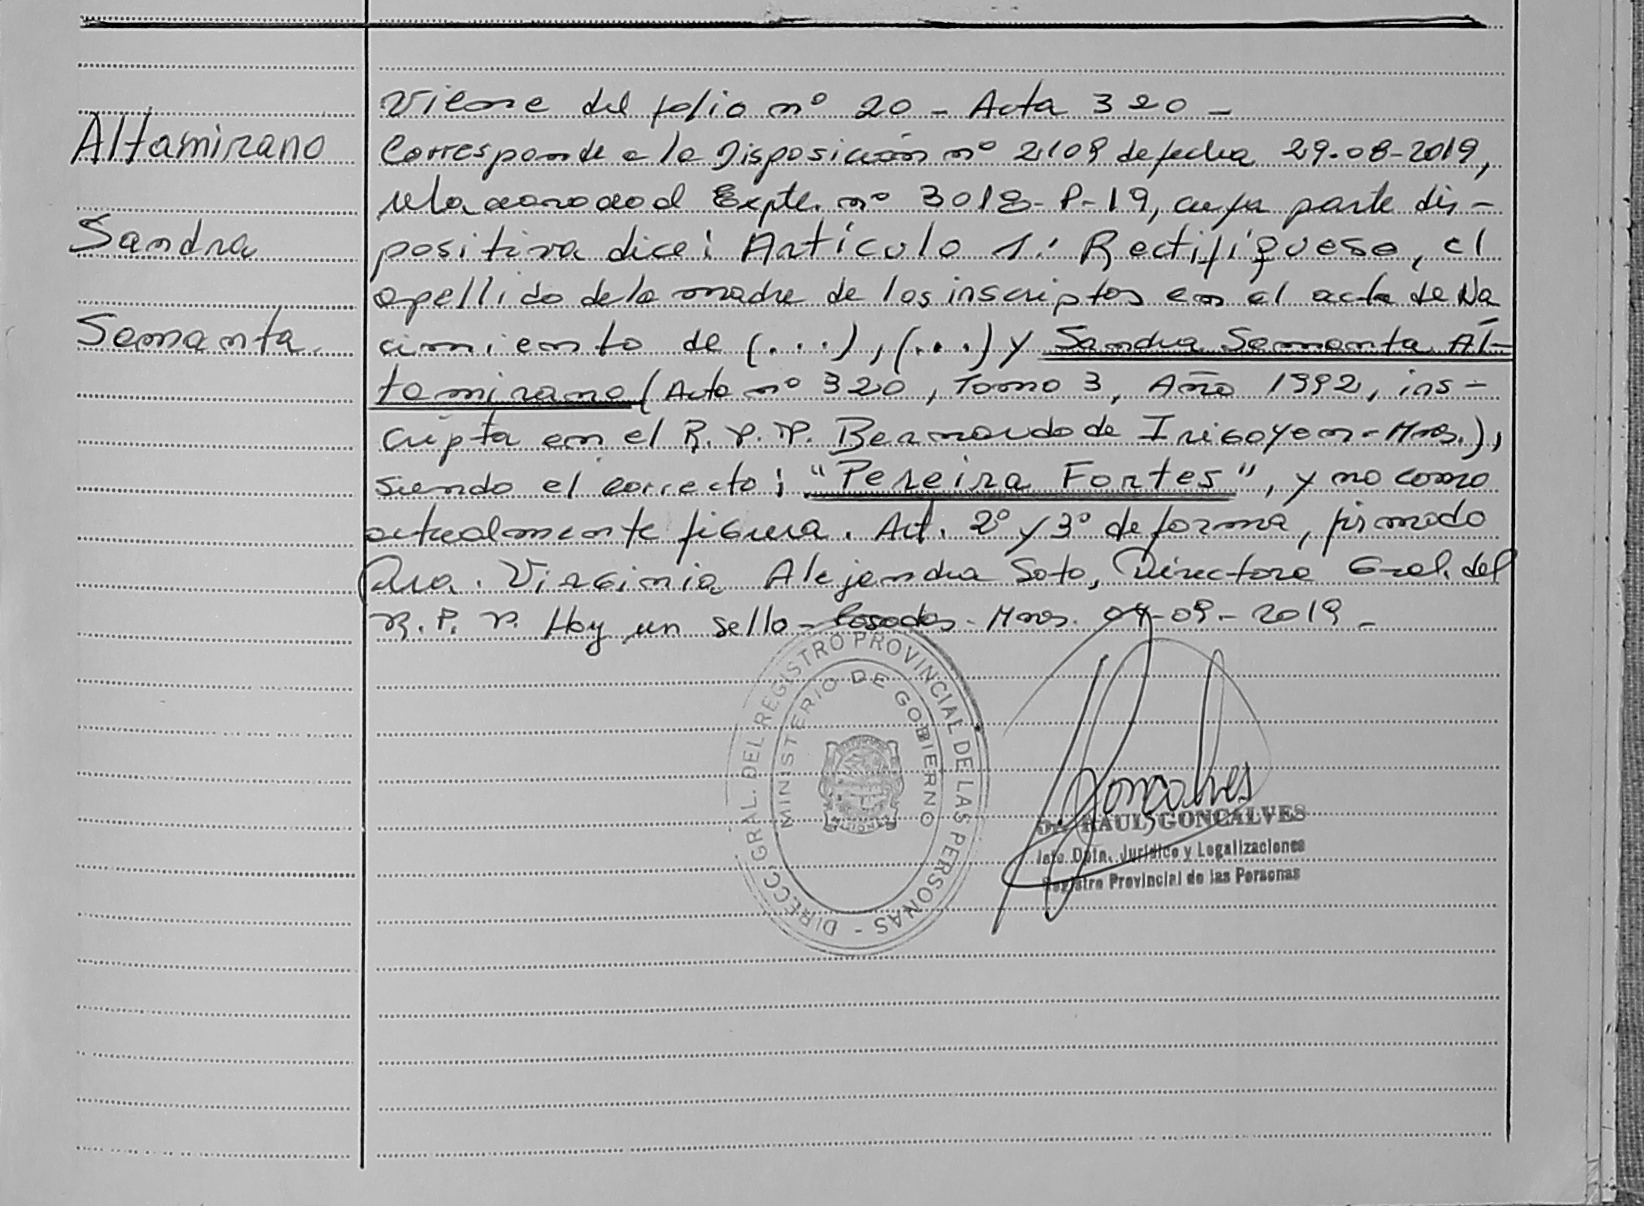 Altamirano
Sandra
Samanta.
Viene del folio nº 20 - Acta 320 -
Corresponde a la Disposición nº 2109 de fecha 29-08-2019,
relacionado al Expte. nº 3018-P-19, cuya parte dis-
positiva dice: Artículo 1: Rectifíquese, el
apellido de la madre de los inscriptos en el acta de Na
cimiento de (...), (...) y Sandra Samanta Al-
tamirano (Acta nº 320, Tomo 3, Año 1992, ins-
cripta en el R.P.P. Bernardo de Irigoyen - Mnes.),
siendo el correcto: "Pereira Fortes", y no como
actualmente figura. Art. 2º y 3º de forma, firmado
Dra. Virginia Alejandra Soto, Directora Gral. del
R.P.P. Hay un sello - Posadas - Mnes. 04-09-2019 -
DIRECC. GRAL. DEL REGISTRO PROVINCIAL DE LAS PERSONAS -
MINISTERIO DE GOBIERNO
MISIONES
Goncalves
Dr. RAUL GONCALVES
Jefe Dpto. Jurídico y Legalizaciones
Registro Provincial de las Personas